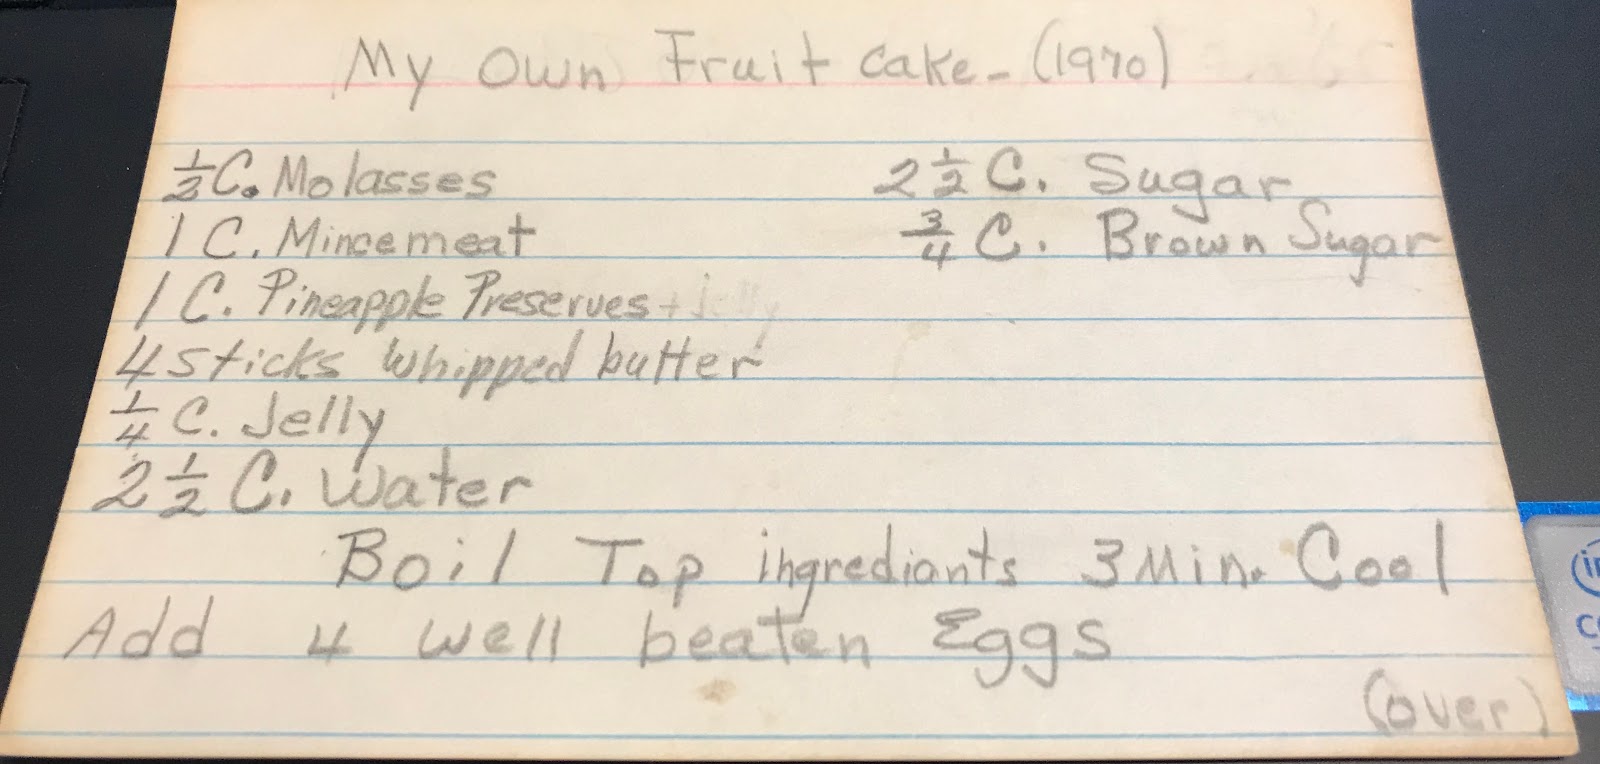 My Own Fruit Cake - (1970)
½ C. Molasses 2 ½ C. Sugar
1 C. Mincemeat ¾ C. Brown Sugar
1 C. Pineapple Preserves + jelly
4 sticks whipped butter
¼ C. Jelly
2 ½ C. Water
Boil Top ingrediants 3 Min. Cool
Add 4 well beaten Eggs
(over)